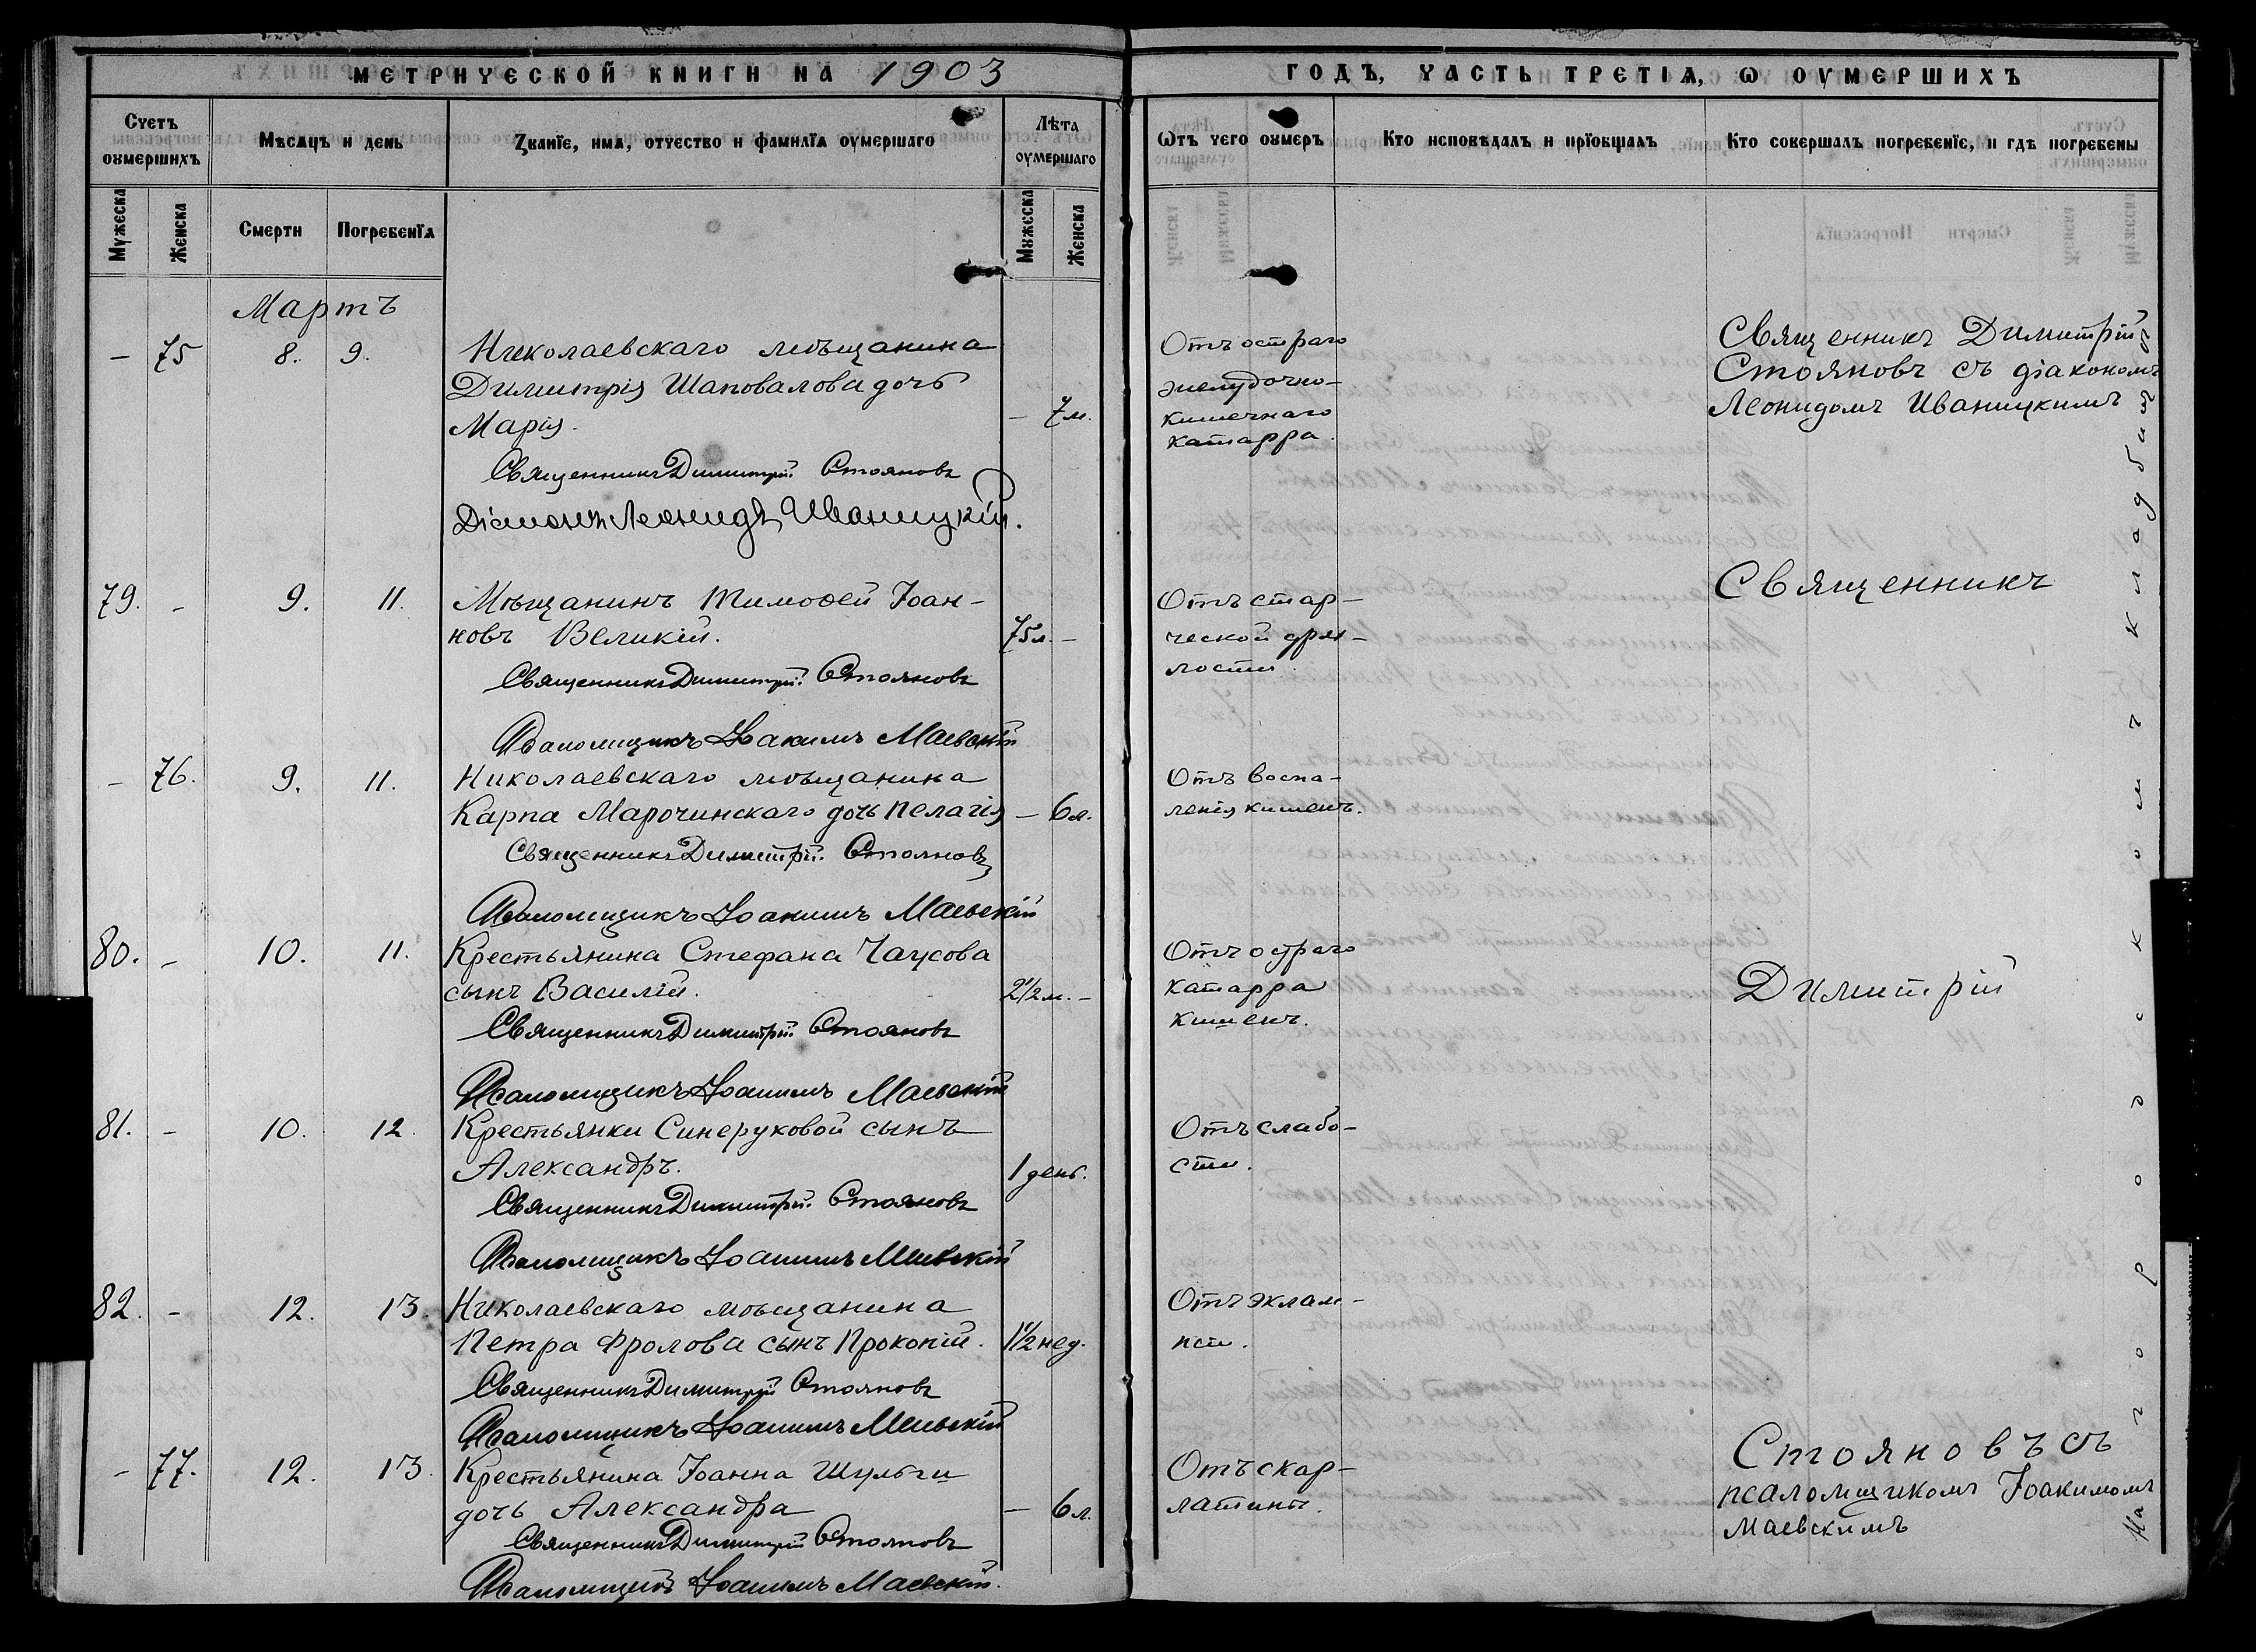 МЕТРИЧЕСКОЙ КНИГИ НА 1903
ГОДЪ, ЧАСТЬ ТРЕТІѦ, Ѡ ОУМЕРШИХЪ
Счетъ оумершихъ
Мѣсѧцъ и день
Ꙁванїе, имѧ, отчество и фамилїѧ оумершаго
Лѣта оумершаго
Ѡтъ чего оумеръ
Кто исповѣдалъ и прїобщалъ
Кто совершалъ погребенїе, и гдѣ погребены
Мужеска
Женска
Смерти
Погребенїѧ
Мужеска
Женска
Мартъ
— 75 8. 9. Николаевскаго мѣщанина
Димитрія Шаповалова дочь
Марія. — 7 м.
Священникъ Димитрій Стояновъ
Діаконъ Леонидъ Иваницкій.
Отъ остраго
желудочно-
кишечнаго
катарра.
Священникъ Димитрій
Стояновъ съ діакономъ
Леонидомъ Иваницкимъ
79. - 9. 11. Мѣщанинъ Тимоѳей Іоан-
новъ Великій. 75 л. —
Священникъ Димитрій Стояновъ
Псаломщикъ Іоакимъ Маевскій
Отъ стар-
ческой дрях-
лости.
Священникъ
— 76. 9. 11. Николаевскаго мѣщанина
Карпа Марочинскаго дочь Пелагія — 6 л.
Священникъ Димитрій Стояновъ
Псаломщикъ Іоакимъ Маевскій
Отъ воспа-
ленія кишекъ.
80. - 10. 11. Крестьянина Стефана Чаусова
сынъ Василій. 2 1/2 м. —
Священникъ Димитрій Стояновъ
Псаломщикъ Іоакимъ Маевскій
Отъ остраго
катарра
кишекъ.
Димитрій
81. - 10. 12. Крестьянки Синеруковой сынъ
Александръ. 1 день.
Священникъ Димитрій Стояновъ
Псаломщикъ Іоакимъ Маевскій
Отъ слабо-
сти.
82. - 12. 13. Николаевскаго мѣщанина
Петра Фролова сынъ Прокопій. 1 1/2 нед.
Священникъ Димитрій Стояновъ
Псаломщикъ Іоакимъ Маевскій
Отъ эклам-
псіи.
- 77. 12. 13. Крестьянина Іоанна Шульги
дочь Александра — 6 л.
Священникъ Димитрій Стояновъ
Псаломщикъ Іоакимъ Маевскій.
Отъ скар-
латины.
Стояновъ съ
псаломщикомъ Іоакимомъ
Маевскимъ
На городскомъ кладбищѣ